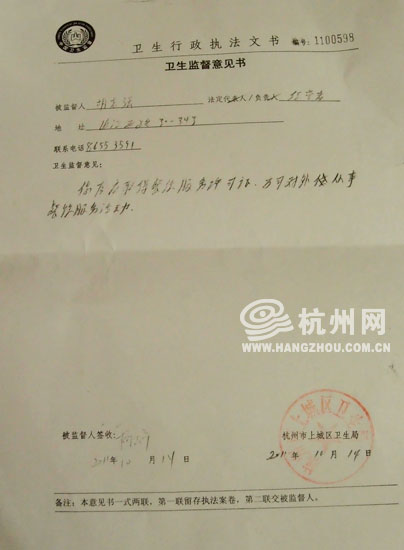 卫生行政执法文书 编号：1100598
卫生监督意见书
被监督人 法定代表人/负责人
地 址
联系电话
卫生监督意见：
你店应取得餐饮服务许可证，方可对外从事
餐饮服务活动。
杭州网
WWW.HANGZHOU.COM.CN
被监督人签收： 杭州市上城区卫生局
2011年10月14日 2011年10月14日
备注：本意见书一式两联，第一联留存执法案卷，第二联交被监督人。